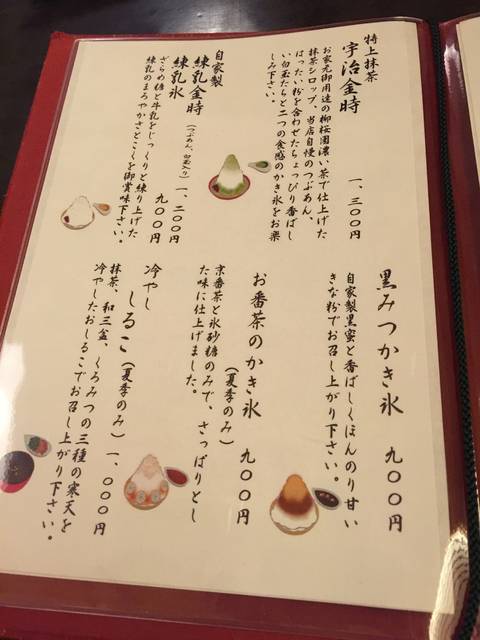 特上抹茶
宇治金時　一、三〇〇円
お家元御用達の柳桜園濃い茶で仕上げた
抹茶シロップ、当店自慢のつぶあん、
はったい粉を合わせたちょっぴり香ばし
い白玉たちと二つの食感のかき氷をお楽
しみ下さい。
自家製
練乳金時（つぶあん、白玉入り）一、二〇〇円
練乳氷　九〇〇円
ざらめ糖と牛乳をじっくりと練り上げた
練乳のまろやかさとこくを御賞味下さい。
黒みつかき氷　九〇〇円
自家製黒蜜と香ばしくほんのり甘い
きな粉でお召し上がり下さい。
お番茶のかき氷　九〇〇円
（夏季のみ）
京番茶と氷砂糖のみで、さっぱりとし
た味に仕上げました。
冷やし
しるこ（夏季のみ）一、〇〇〇円
抹茶、和三盆、くろみつの三種の寒天を
冷やしたおしるこでお召し上がり下さい。